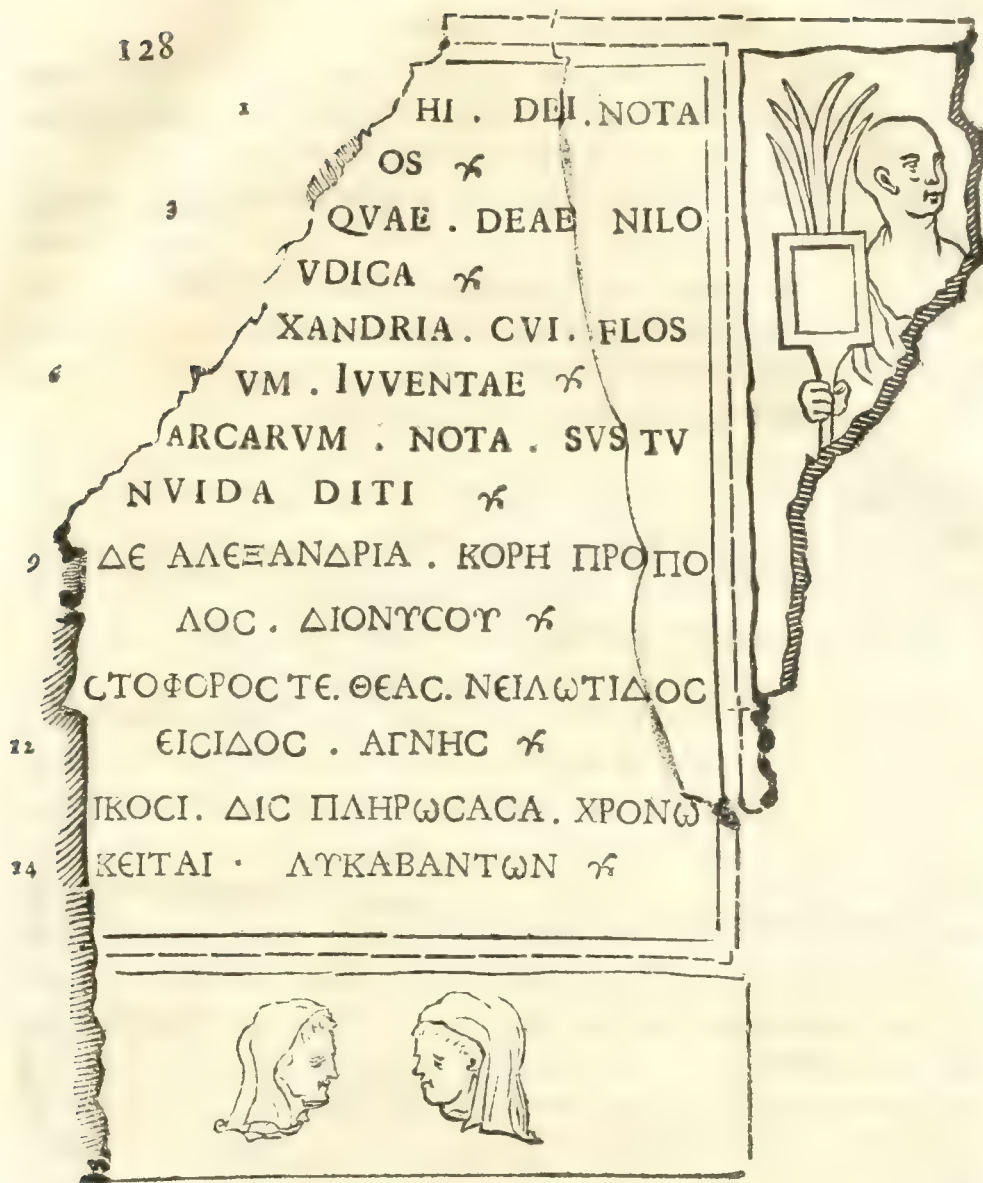 128
1 HI . DEI . NOTA
OS
3 QVAE . DEAE NILO
VDICA
XANDRIA . CVI . FLOS
6 VM . IVVENTAE
ARCARVM . NOTA . SVS TV
NVIDA DITI
9 ΔЄ ΑΛЄΞΑΝΔΡΙΑ . ΚΟΡΗ ΠΡΟΠΟ
ΛΟC . ΔΙΟΝΥCΟΥ
CΤΟΦΟΡΟC ΤЄ . ΘЄΑC . ΝЄΙΛωΤΙΔΟC
12 ЄΙCΙΔΟC . ΑΓΝΗC
ΙΚΟCΙ . ΔΙC ΠΛΗΡωCΑCΑ . ΧΡΟΝω
14 ΚЄΙΤΑΙ · ΛΥΚΑΒΑΝΤωΝ